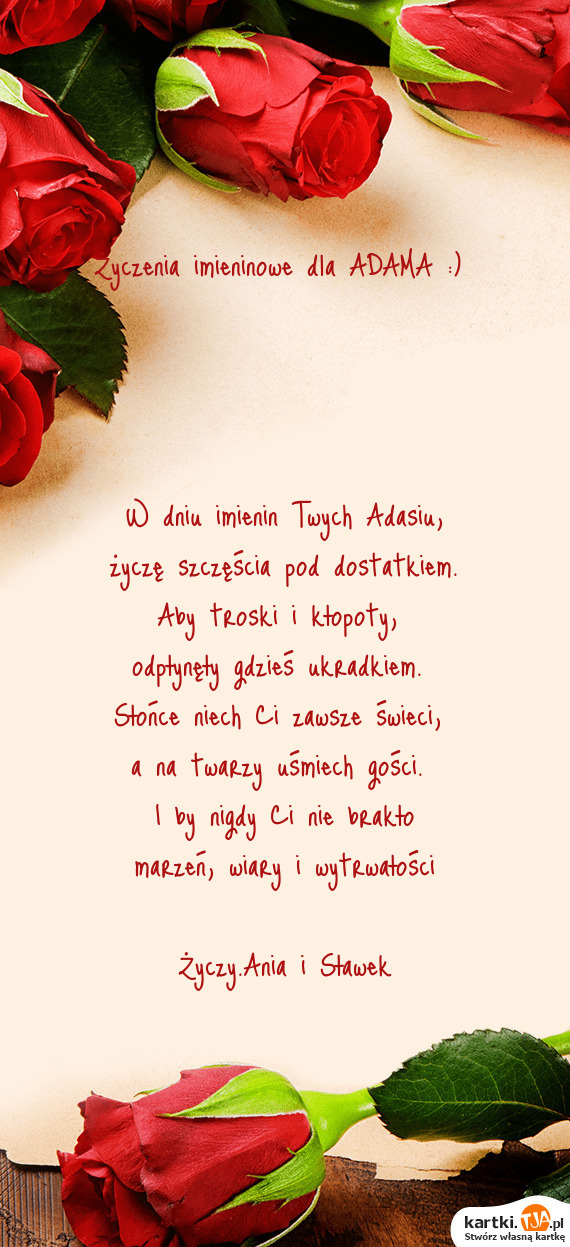 Życzenia imieninowe dla ADAMA :)
W dniu imienin Twych Adasiu,
życzę szczęścia pod dostatkiem.
Aby troski i kłopoty,
odpłynęły gdzieś ukradkiem.
Słońce niech Ci zawsze świeci,
a na twarzy uśmiech gości.
I by nigdy Ci nie brakło
marzeń, wiary i wytrwałości
Życzy.Ania i Sławek
kartki.TJA.pl
Stwórz własną kartkę